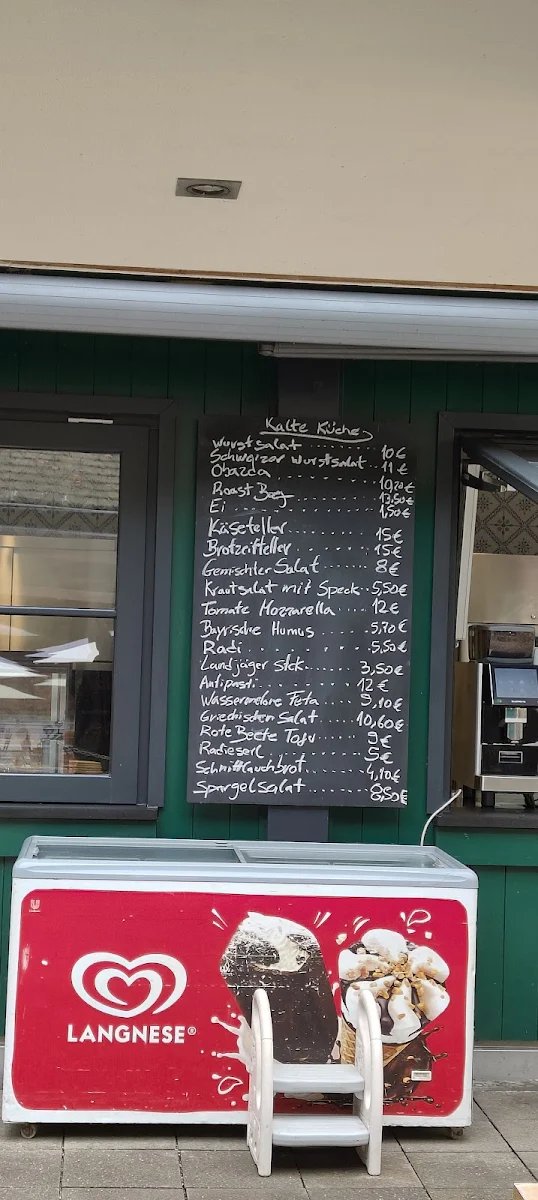 Kalte Küche
Wurstsalat ........ 10€
Schweizer Wurstsalat .. 11€
Obazda ........ 10,20€
Roast Beef ........ 13,50€
Ei ........ 1,50€
Käseteller ........ 15€
Brotzeitteller ........ 15€
Gemischter Salat ..... 8€
Krautsalat mit Speck ... 5,50€
Tomate Mozzarella .... 12€
Bayrische Humus ..... 5,70€
Radi ........ 5,50€
Landjäger Stck. ..... 3,50€
Antipasti ........ 12€
Wassermelone Feta .... 9,10€
Griechischen Salat .... 10,60€
Rote Beete Tofu .... 9€
Radieserl ........ 5€
Schnittlauchbrot ...... 4,10€
Spargelsalat ........ 8,50€
LANGNESE®